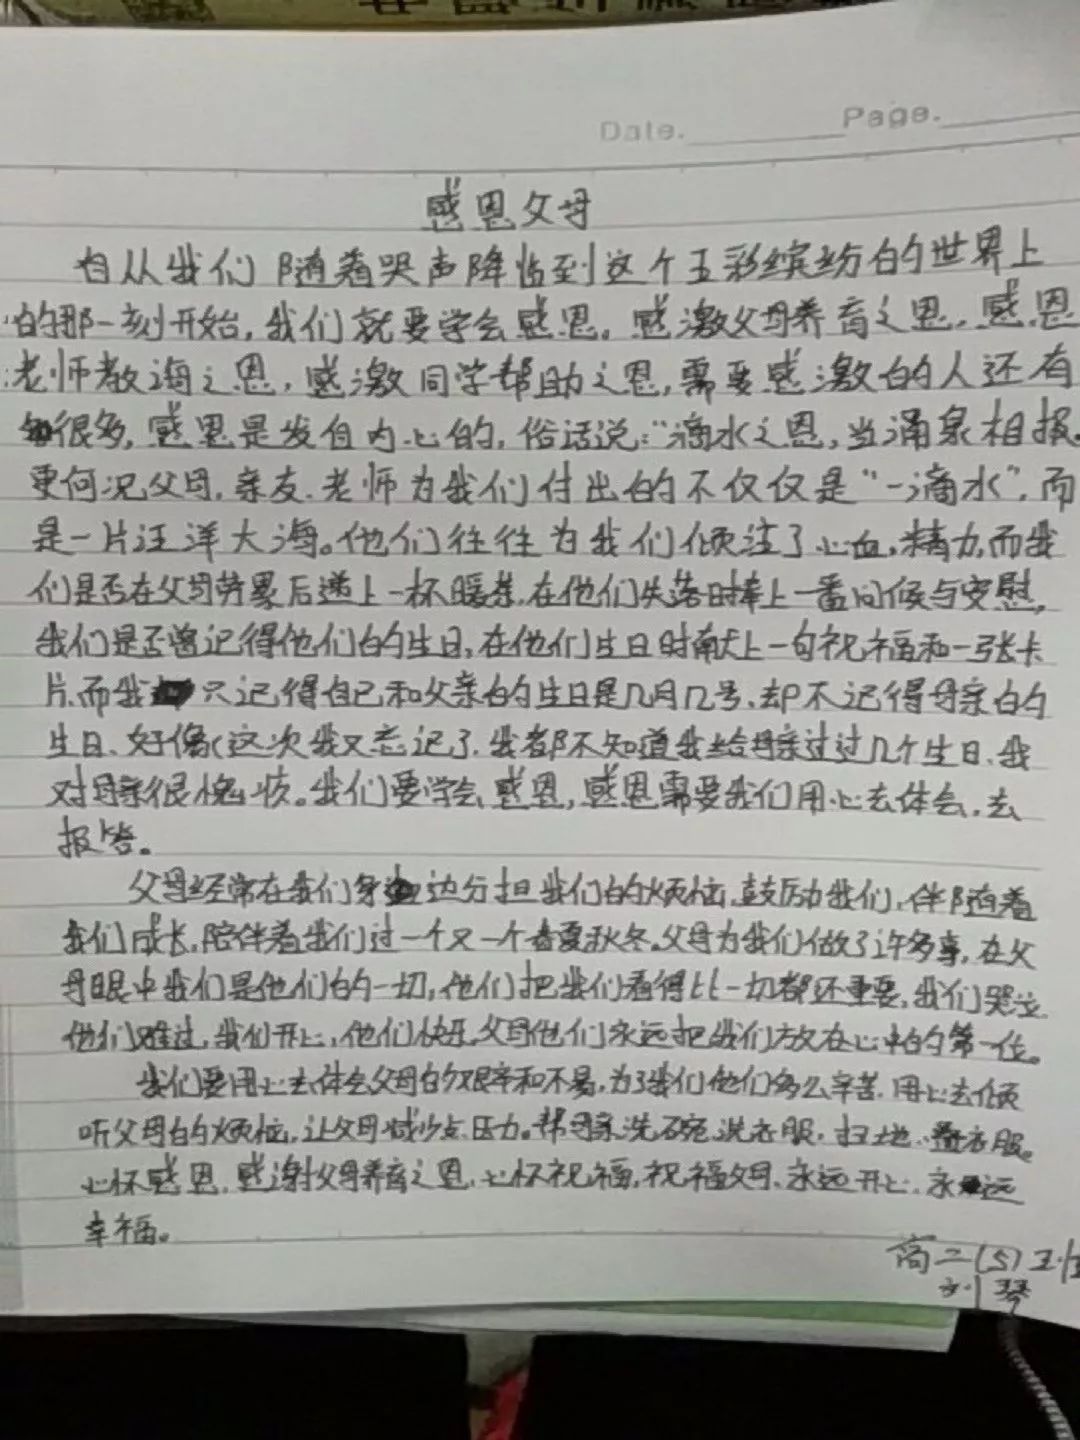 Date. Page.
感恩父母
自从我们随着哭声降临到这个五彩缤纷的世界上
的那一刻开始，我们就要学会感恩。感激父母养育之恩，感恩
老师教诲之恩，感激同学帮助之恩，需要感激的人还有
很多，感恩是发自内心的，俗话说："滴水之恩，当涌泉相报。
更何况父母，亲友、老师为我们付出的不仅仅是"一滴水"，而
是一片汪洋大海。他们往往为我们倾注了心血，精力，而我
们是否在父母劳累后递上一杯暖茶，在他们失落时捧上一番问候与安慰，
我们是否曾记得他们的生日，在他们生日时献上一句祝福和一张卡
片，而我只记得自己和父亲的生日是几月几号，却不记得母亲的
生日、好像（这次我又忘记了，我都不知道我给母亲过过几个生日、我
对母亲很愧疚。我们要学会感恩，感恩需要我们用心去体会，去
报答。
父母经常在我们身边分担我们的烦恼，鼓励我们，伴随着
我们成长，陪伴着我们过一个又一个春夏秋冬。父母为我们做了许多事，在父
母眼中我们是他们的一切，他们把我们看得比一切都还重要，我们哭泣
他们难过，我们开心，他们快乐，父母他们永远把我们放在心中的第一位。
我们要用心去体会父母的艰辛和不易，为了我们他们多么辛苦，用心去倾
听父母的烦恼，让父母减少点压力。帮母亲洗碗，洗衣服，扫地、叠衣服。
心怀感恩，感谢父母养育之恩，心怀祝福，祝福父母，永远开心，永远
幸福。
高二（5）班
刘琴